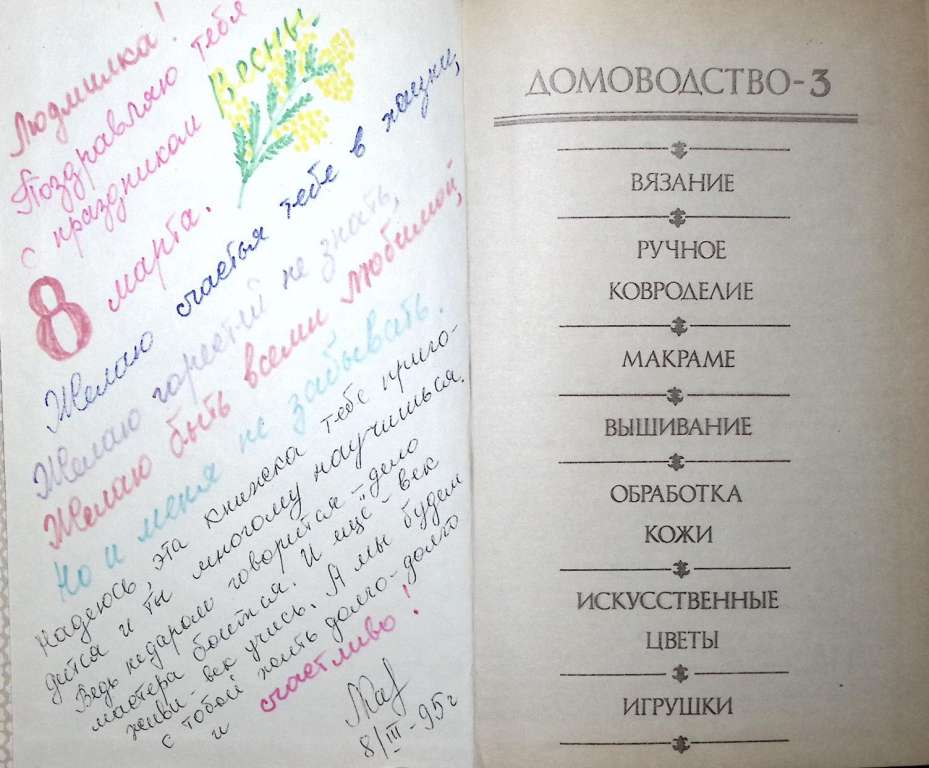 Людмилка!
Поздравляю тебя
с праздником Весны
8 марта.
Желаю счастья тебе в жизни,
Желаю горестей не знать,
Желаю быть всеми любимой,
Но и меня не забывать.
Надеюсь, эта книжка тебе приго-
дится и ты многому научишься.
Ведь недаром говорится – дело
мастера боится. И ещё – век
живи – век учись. А мы будем
с тобой жить долго-долго
и счастливо!
8/III-95г
ДОМОВОДСТВО-3
ВЯЗАНИЕ
РУЧНОЕ
КОВРОДЕЛИЕ
МАКРАМЕ
ВЫШИВАНИЕ
ОБРАБОТКА
КОЖИ
ИСКУССТВЕННЫЕ
ЦВЕТЫ
ИГРУШКИ